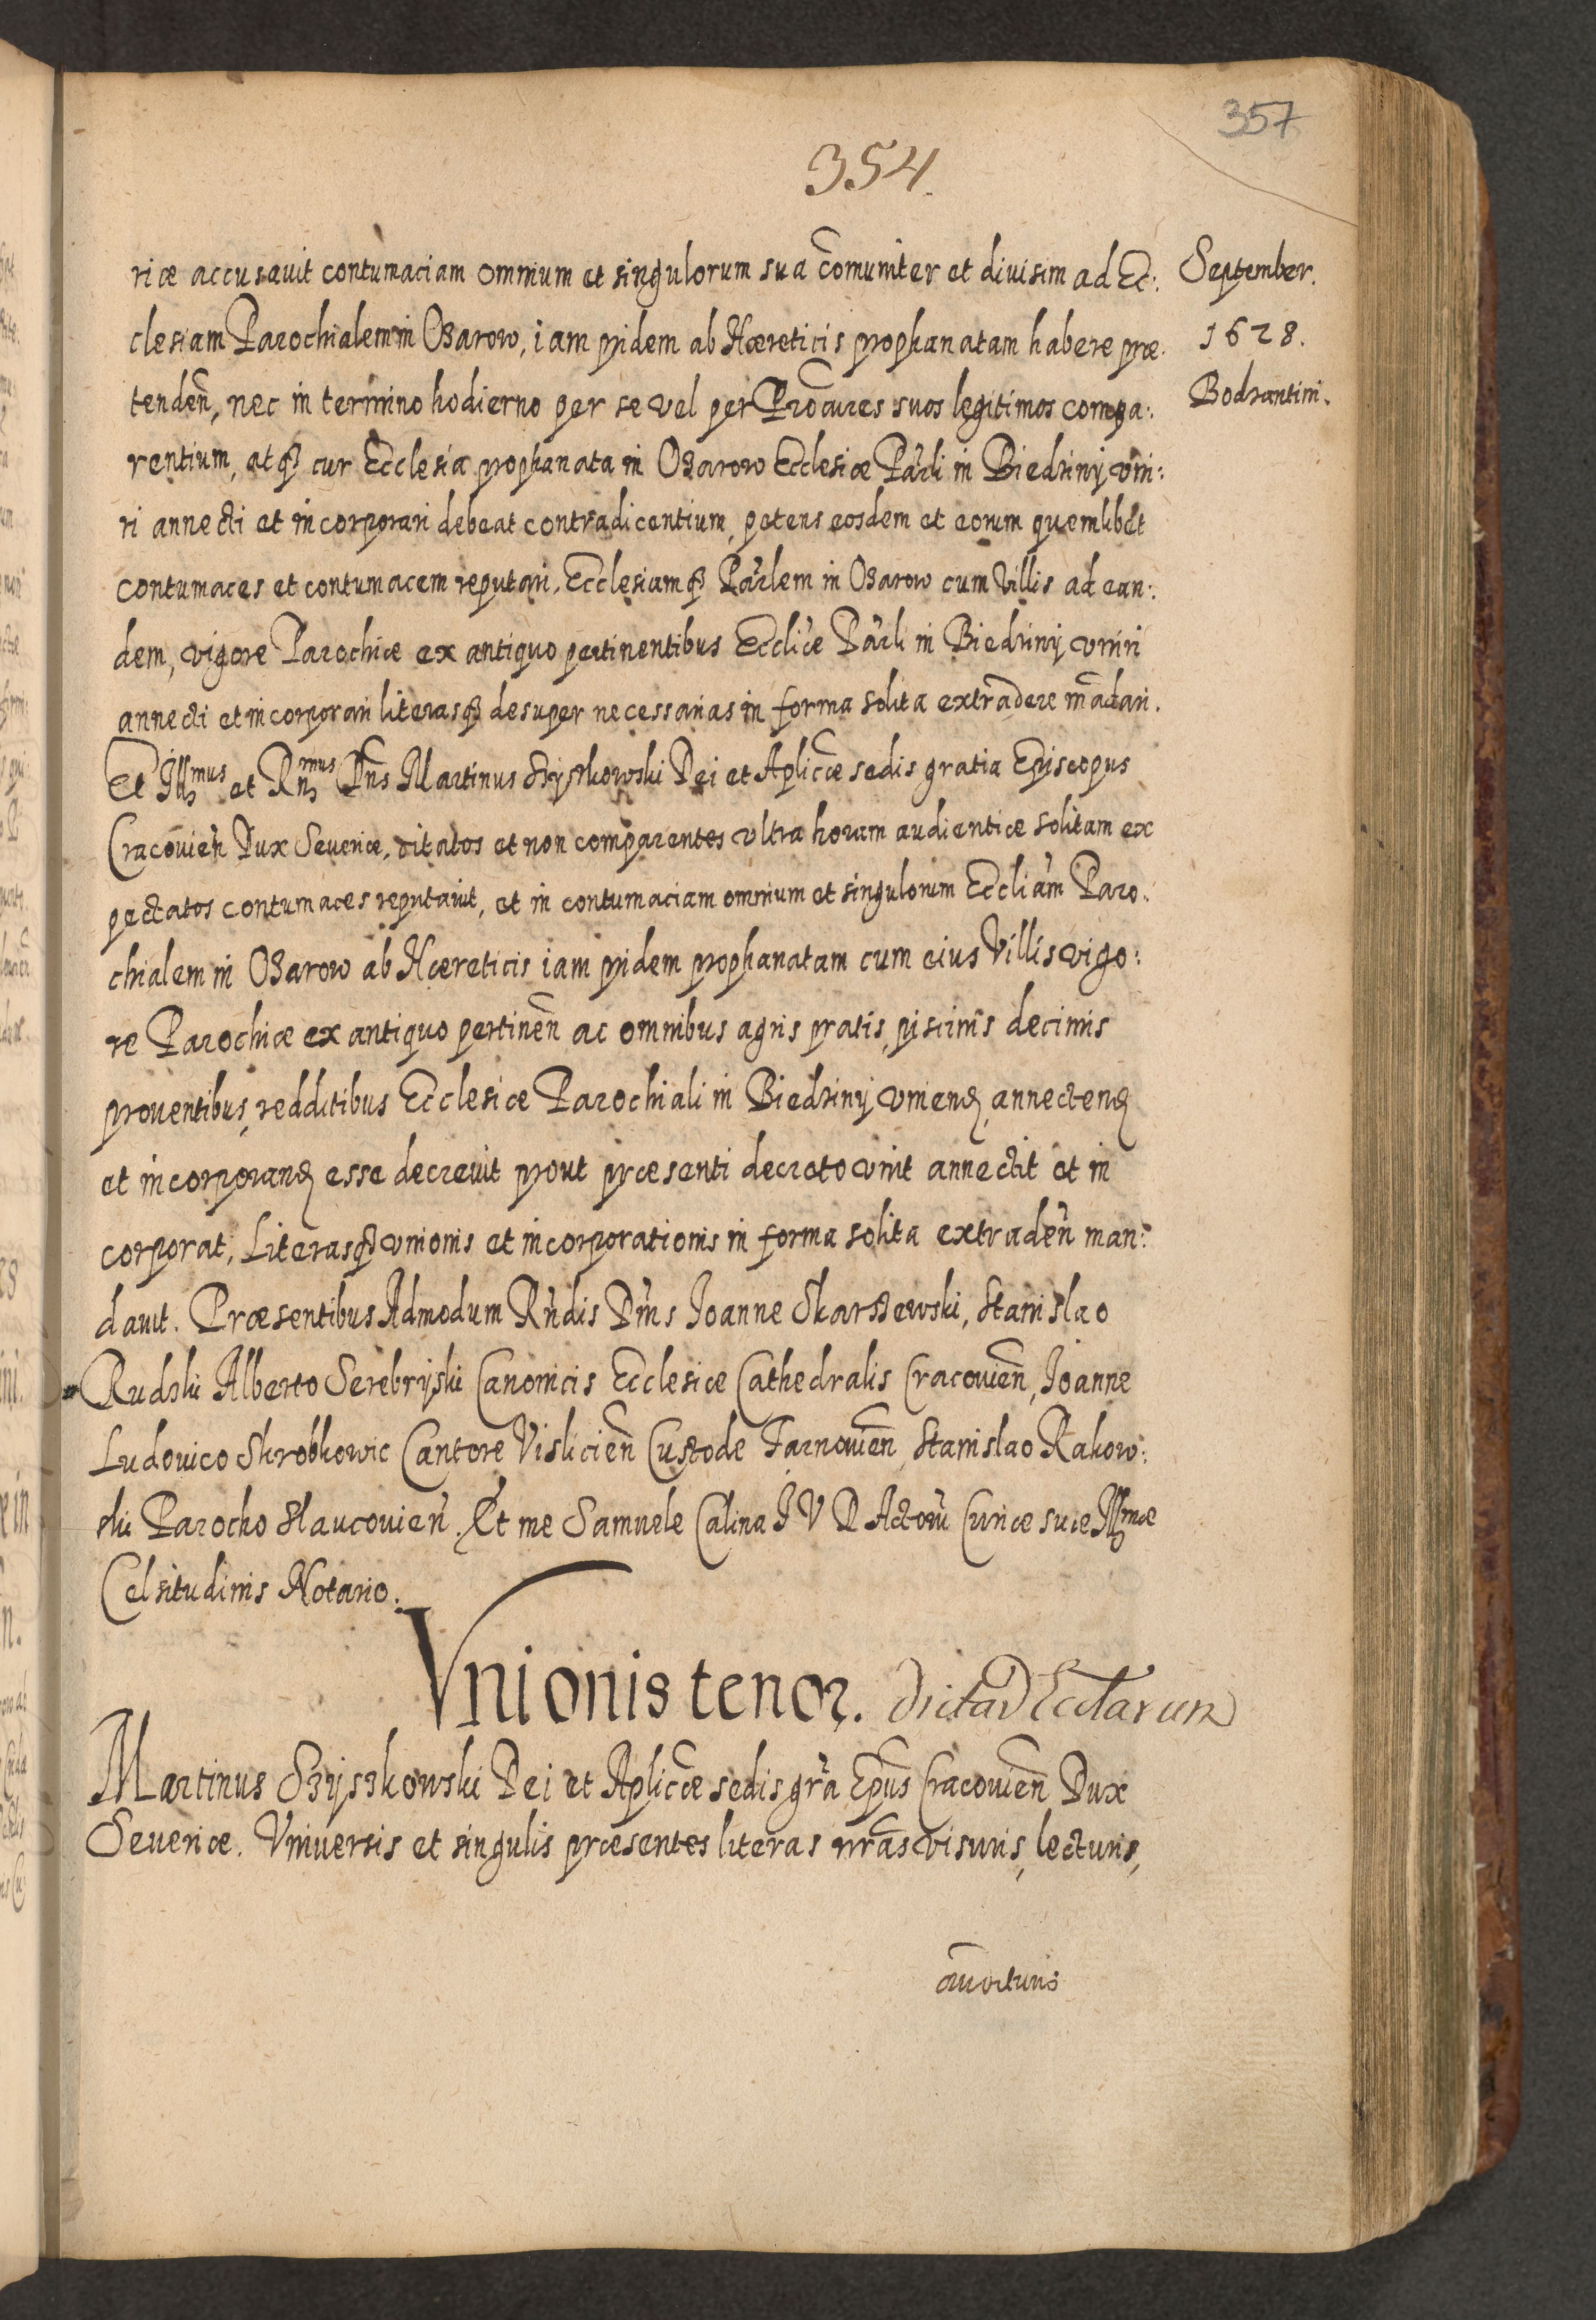 357
354.
September.
1628.
Bodzantini.
riæ accusauit contumaciam omnium et singulorum sua com̃uniter et diuisim ad Ec:
clesiam Parochialem in Ożarow, iam pridem ab Hæreticis prophanatam habere præ:
tendeñ, nec in termino hodierno per se vel per Procures suos legitimos compa:
rentium, atq3 cur Ecclesia prophanata in Ożarow Ecclesiæ Parli in Biedrziny vni:
ri annecti et incorporari debeat contradicentium, petens eosdem et eorum quemlibet
contumaces et contumacem reputari, Ecclesiamq3 Parlem in Ożarow cum Villis ad ean:
dem, vigore Parochiæ ex antiquo pertinentibus Eccliæ Parli in Biedrziny vniri
annecti et incorporari literasq3 desuper necessarias in forma solita extradere mãdari.
Et Illmus et Rnmus Dñs Martinus Szyszkowski Dei et Aplicæ sedis gratia Episcopus
Cracouień Dux Seueriæ, citatos et non comparentes vltra horam audientiæ solitam ex
pectatos contumaces reputauit, et in contumaciam omnium et singulorum Eccliam Paro:
chialem in Ożarow ab Hæreticis iam pridem prophanatam cum eius Villis vigo:
re Parochiæ ex antiquo pertineñ ac omnibus agris pratis, piscinis decimis
prouentibus, redditibus Ecclesiæ Parochiali in Biedrziny vniend, annectend
et incorporand esse decreuit prout præsenti decreto vnit annectit et in
corporat, Literasq3 vnionis et incorporationis in forma solita extradeñ man:
dauit. Præsentibus Admodum Rńdis Dńis Ioanne Skarszewski, Stanislao
Rudzki Alberto Serebryski Canonicis Ecclesiæ Cathedralis Cracouień, Ioanne
Ludouico Skrobkowic Cantore Visliciеñ Custode Tarnouień, Stanislao Rakow:
ski Parocho Slaucouień. Et me Samuele Calina I V D Actorũ Curiæ suæ Illmæ
Celsitudinis Notario.
Vnionis tenor. dictar̃ Ecclarum
Martinus Szyszkowski Dei et Aplicæ sedis gr̃a Ep̃us Cracouień Dux
Seueriæ. Vniuersis et singulis præsentes literas nr̃as visuris, lecturis,